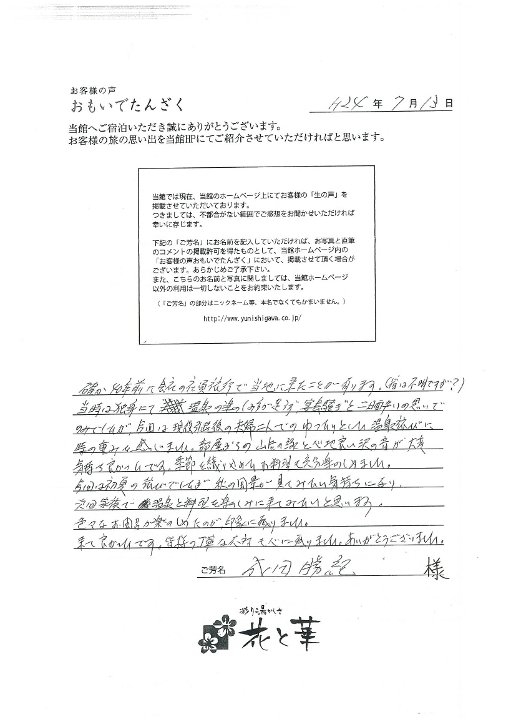 お客様の声
おもいでたんざく
H24年7月13日
当館へご宿泊いただき誠にありがとうございます。
お客様の旅の思い出を当館HPにてご紹介させていただければと思います。
当館では現在、当館のホームページ上にてお客様の「生の声」を
掲載させていただいております。
つきましては、不都合がない範囲でご感想をお聞かせいただければ
幸いに存じます。
下記の「ご芳名」にお名前を記入していただければ、お写真と直筆
のコメントの掲載許可を得たものとして、当館ホームページ内の
「お客様の声おもいでたんざく」において、掲載させて頂く場合が
ございます。あらかじめご了承下さい。
また、こちらのお名前と写真に関しましては、当館ホームページ
以外の利用は一切しないことをお約束いたします。
(「ご芳名」の部分はニックネーム等、本名でなくてもかまいません。)
http://www.yunishigawa.co.jp/
前に会社の社員旅行で当地に来たことが有ります。(宿は不明ですが?)
当時は
のみでしたが今回は 夫婦二人でのゆったりとした温泉旅に
時の重みを感じました。部屋からの山合の緑と心地良い沢の音が大変
気持ち良かったです。季節を織り込めたお料理も充分楽しめました。
今回は初夏の旅でしたが秋の風景が見てみたい気持ちになり
次回家族で温泉と料理を楽しみに来てみたいと思います。
色々なお風呂が楽しめたのが印象に残りました。
来て良かったです。皆様の丁寧な応対も心に残りました。ありがとうございました。
ご芳名 様
花と華